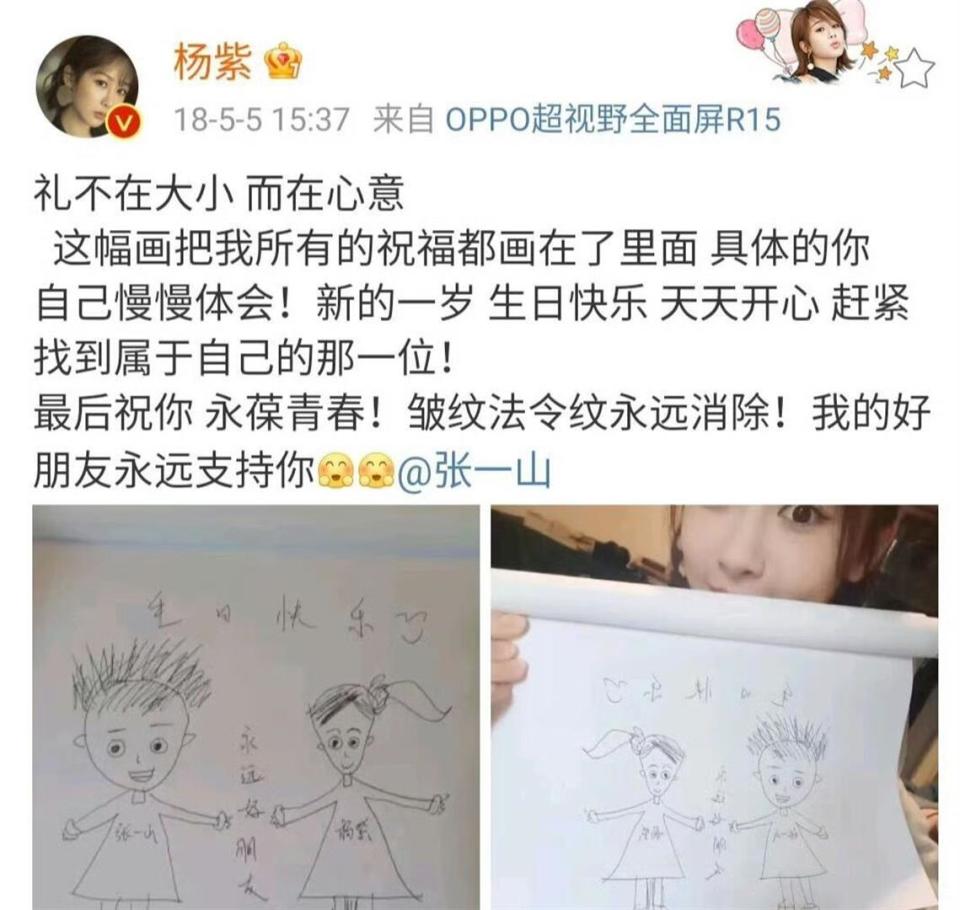 杨紫
18-5-5 15:37 来自 OPPO超视野全面屏R15
礼不在大小 而在心意
这幅画把我所有的祝福都画在了里面 具体的你
自己慢慢体会！新的一岁 生日快乐 天天开心 赶紧
找到属于自己的那一位！
最后祝你 永葆青春！皱纹法令纹永远消除！我的好
朋友永远支持你@张一山
生日快乐
永远好朋友
张一山
杨紫